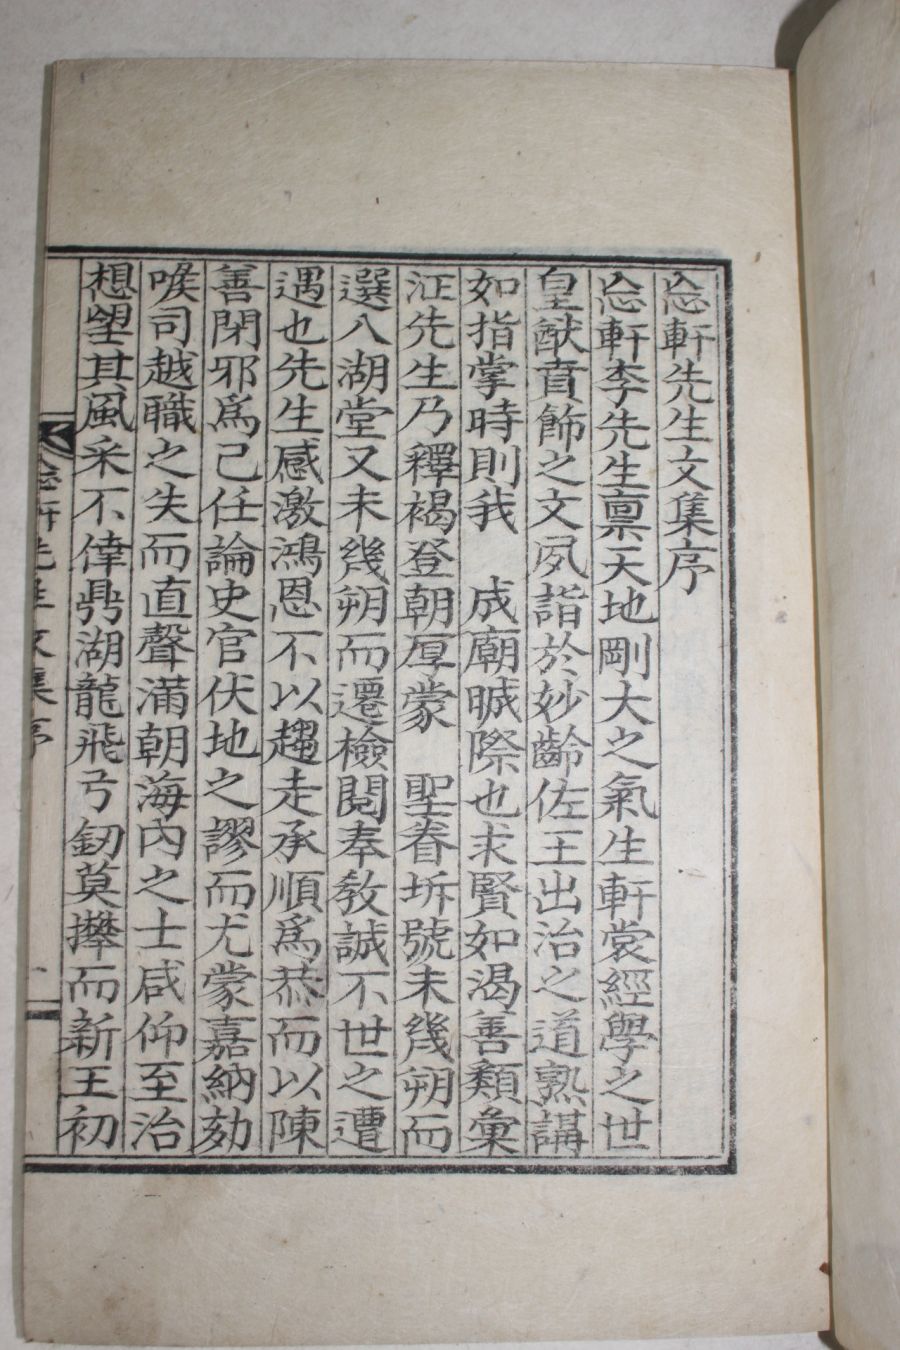 㤀軒先生文集序
㤀軒李先生禀天地剛大之氣生軒裳經學之世
皇猷賁飾之文夙詣於妙齡佐王出治之道熟講
如指掌時則我 成廟晠際也求賢如渴善類彙
征先生乃釋褐登朝厚蒙 聖眷坼號未幾朔而
選入湖堂又未幾朔而遷檢閱奉敎誠不世之遭
遇也先生感激鴻恩不以趨走承順爲恭而以陳
善閉邪爲己任論史官伏地之謬而尤蒙嘉納劾
喉司越職之失而直聲滿朝海內之士咸仰至治
想望其風采不倖鼎湖龍飛弓釰莫攀而新王初
㤀軒先生文集序